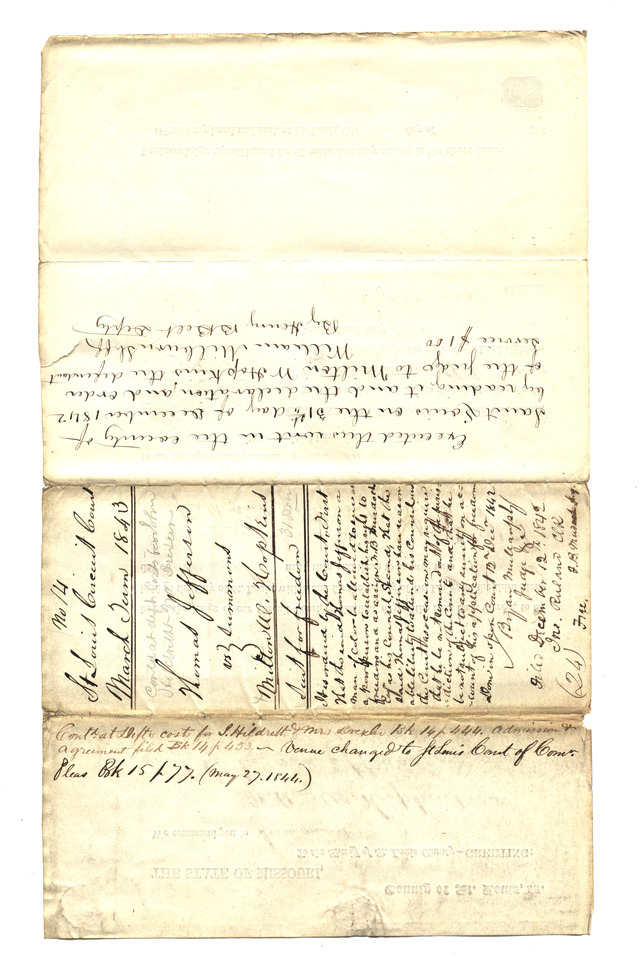 Executed this writ in the county of
Saint Louis on the 31st day of December 1842
by reading it and the declaration, and order
of the Judge to Milton W Hopkins the defendant
Service $1 00 William Milburn Shff
By Henry B Belt Depty
No 14
St Louis Circuit Court
March Term 1843
Thomas Jefferson
vs } summons
Milton W. Hopkins
Suit for freedom 31 Dec
It is ordered by the Court, First
that the said Thomas Jefferson a
man of color be allowed to sue as
a poor person to establish his right to
freedom and assigns
as his Counsel. Secondly, that the
said Thomas Jefferson have reason
able liberty to attend his Counsel and
the Court as occasion may require
that he be not removed out of the juris
diction of the Court, and that he
be not subject to any severity on ac
count of his application for freedom
Done in open Court 12th Decr 1842
Bryan Mullanphy
Judge &c
Filed December 12th 1842
Jno. Ruland Clk
(24) Fee.
Contd at Defts costs for S. Hildreth & Mrs Drexler Bk 14 p 444. admission &
agreement filed Bk 14 p 453 — Venue changed to St Louis Court of Com.
Pleas Bk 15 p 77. (May 27. 1844.)
We command you to
To the Sheriff of St. Louis County—GREETING:
THE STATE OF MISSOURI,
County of St. Louis, ss.